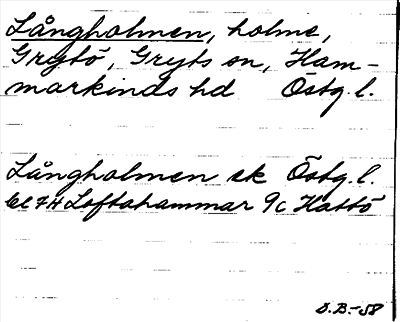 Långholmen, holme,
Grytö, Gryts sn, Ham-
markinds hd Östg. l.
Långholmen ek Östg. l.
bl 7H Loftahammar 9c Hattö
S.B.-58